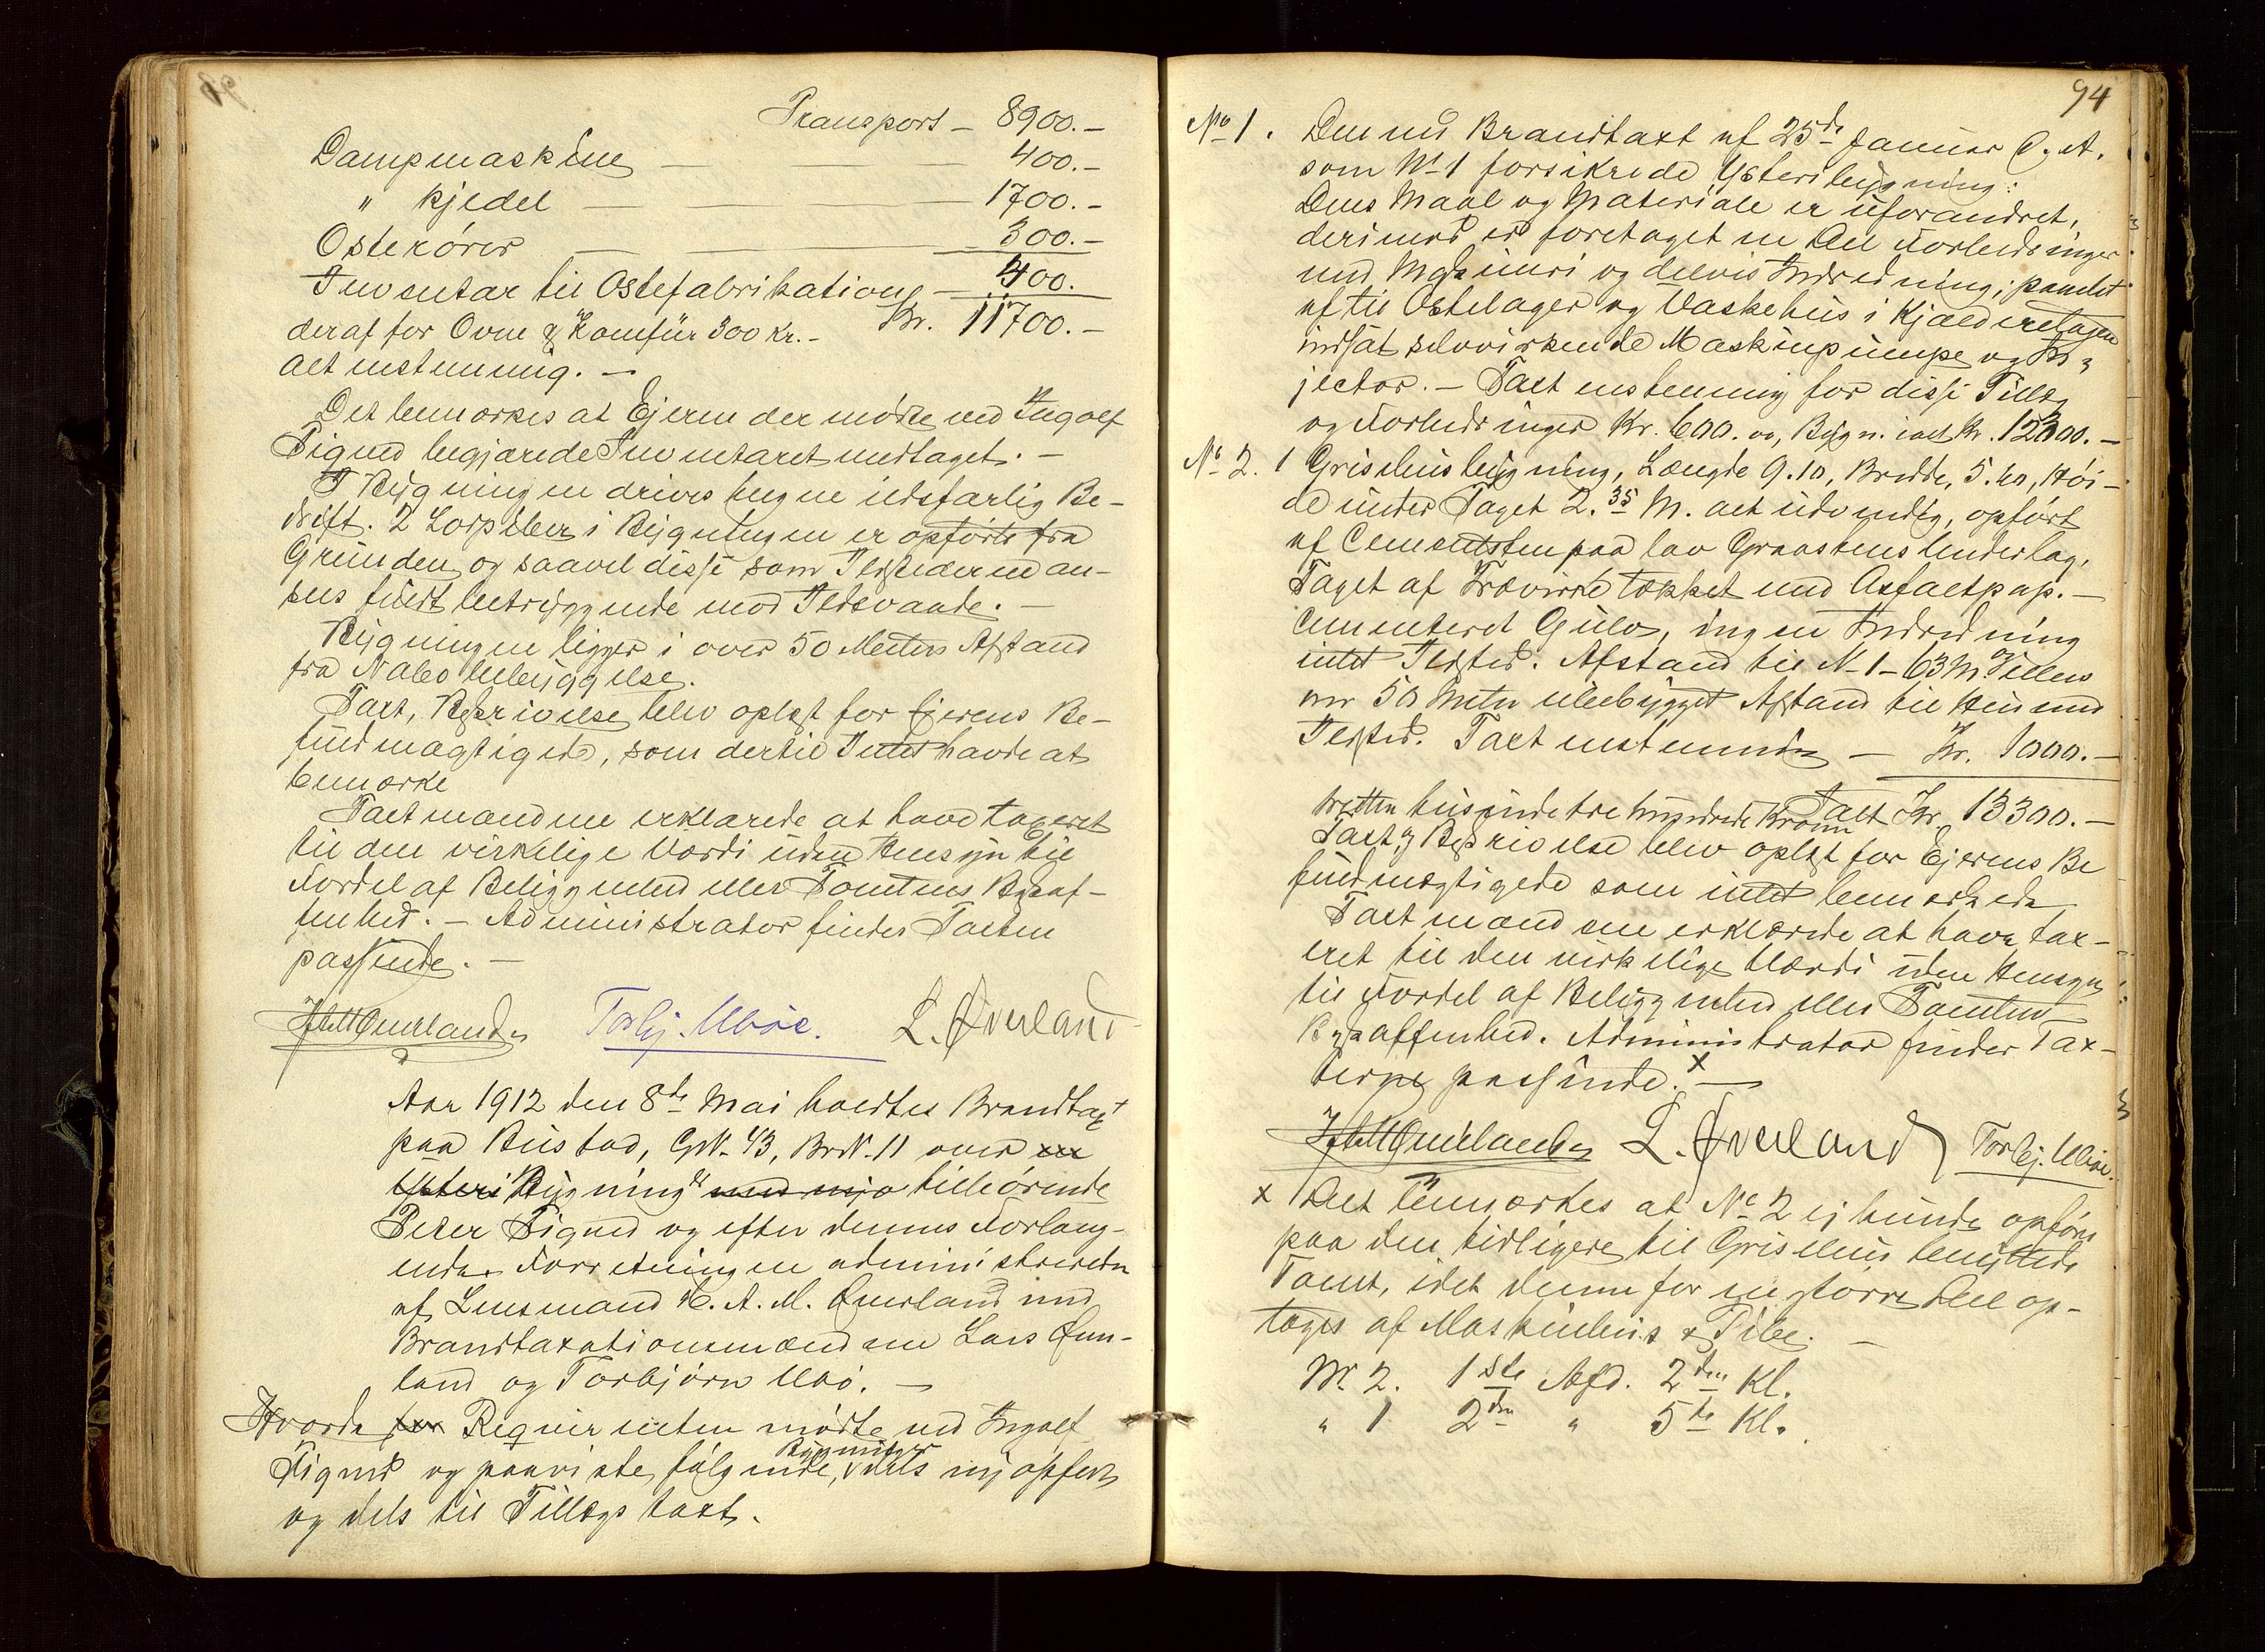 Transport – 8900.–
Dampmaskine — 400.–
" kjedel — 1700.–
Ostekörer — 300.–
Inventar til Ostefabrikation — 400.
deraf for Ovne & Komfür 300 Kr.– Kr. 11700.–
alt enstemmig. –
Det bemærkes at Ejeren der mödte ved Ingolf
Tigned begjærede Inventaret medtaget. –
I Bygningen drives ingen ildsfarlig Be-
drift. 2 Loppiber i Bygningen er opförte fra
Grunden og saavel disse som Ildstederne an-
sees fuldt betryggende mod Ildsvaade. –
Bygningen ligger i over 50 Meters Afstand
fra Nabobebyggelse.
Taxt, Beskrivelse blev oplæst for Ejerens Be-
fuldmægtigede, som dertil Intet havde at
bemærke
Taxtmændene erklærede at have taxeret
til den virkelige Værdi uden Hensyn til
Fordel af Beliggenhed eller Tomtens Beskaf-
fenhed. – Administrator finder Taxten
passende. –
Torbj. Ubøe. L. Øverland
Aar 1912 den 8de Mai holdtes Brandtaxt
paa Bustad, GN. 43, BrN. 11 over
Ysteri Bygning med mjø tilhörende
Peter Tigned og efter dennes Forlang-
ende. Forretningen administreredes
af Lensmand H. A. M. Ömerland med
Brandtaxationsmændene Lars Över-
land og Torbjörn Ubö. –
Hvorda for Requirenten mödte ved Ingolf
Bygninger
Tigned og paaviste fölgende, dels nyopförte
og dels til Tillægs taxt.
94
No 1. Den ved Brandtaxt af 25de Januar d. A.
som No 1 forsikrede Ysteribygning:
Dens Maal og Materiale er uforandret,
derimod er foretaget en Del Forbedringer
ved Maskineri og delvis Indredning; samt
af til Ostelager og Vaskehus i Kjælderetagen
indsat selvvirkende Maskinpumpe og In-
jector. – Taxt enstemmig for disse Tillæg
og Forbedringer Kr. 600. oo, Bygn. ialt Kr. 12300.–
No 2. 1 Grisehusbygning, Længde 9.10, Bredde, 5.40, Höi-
de under Taget 2.35 M. alt udvendig, opfört
af Cementsten paa lav Graastens Underlag,
Taget af Trævirke tækket med Asfaltpap. –
Cementeret Gulv, ingen Indredning
intet Ildsted. Afstand til N. 1 – 63 M. og Tillens
over 50 Meter ubebygget Afstand til Hus med
Ildsted. Taxt enstemmig — Kr. 1000.–
Taxt Kr. 13300.–
tretten tusinde tre hundrede Kroner
Taxt og Beskrivelse blev oplæst for Ejerens Be
fuldmægtigede som intet bemærkede
Taxtmændene erklærede at have tax-
eret til den virkelige Værdi uden Hensyn
til Fordel af Beliggenhed eller Tomtens
Beskaffenhed. Administrator finder Tax-
terne passende. x –
L. Øverland Torbj. Ubøe.
x Det bemærkes at No 2 ej kunde opföres
paa den tidligere til Grisehus benyttede
Tomt, idet denne for en större Del op-
tages af Maskinhus & Pibe. –
No. 2. 1ste Afd. 2den Kl.
" 1 2den " 5te Kl.